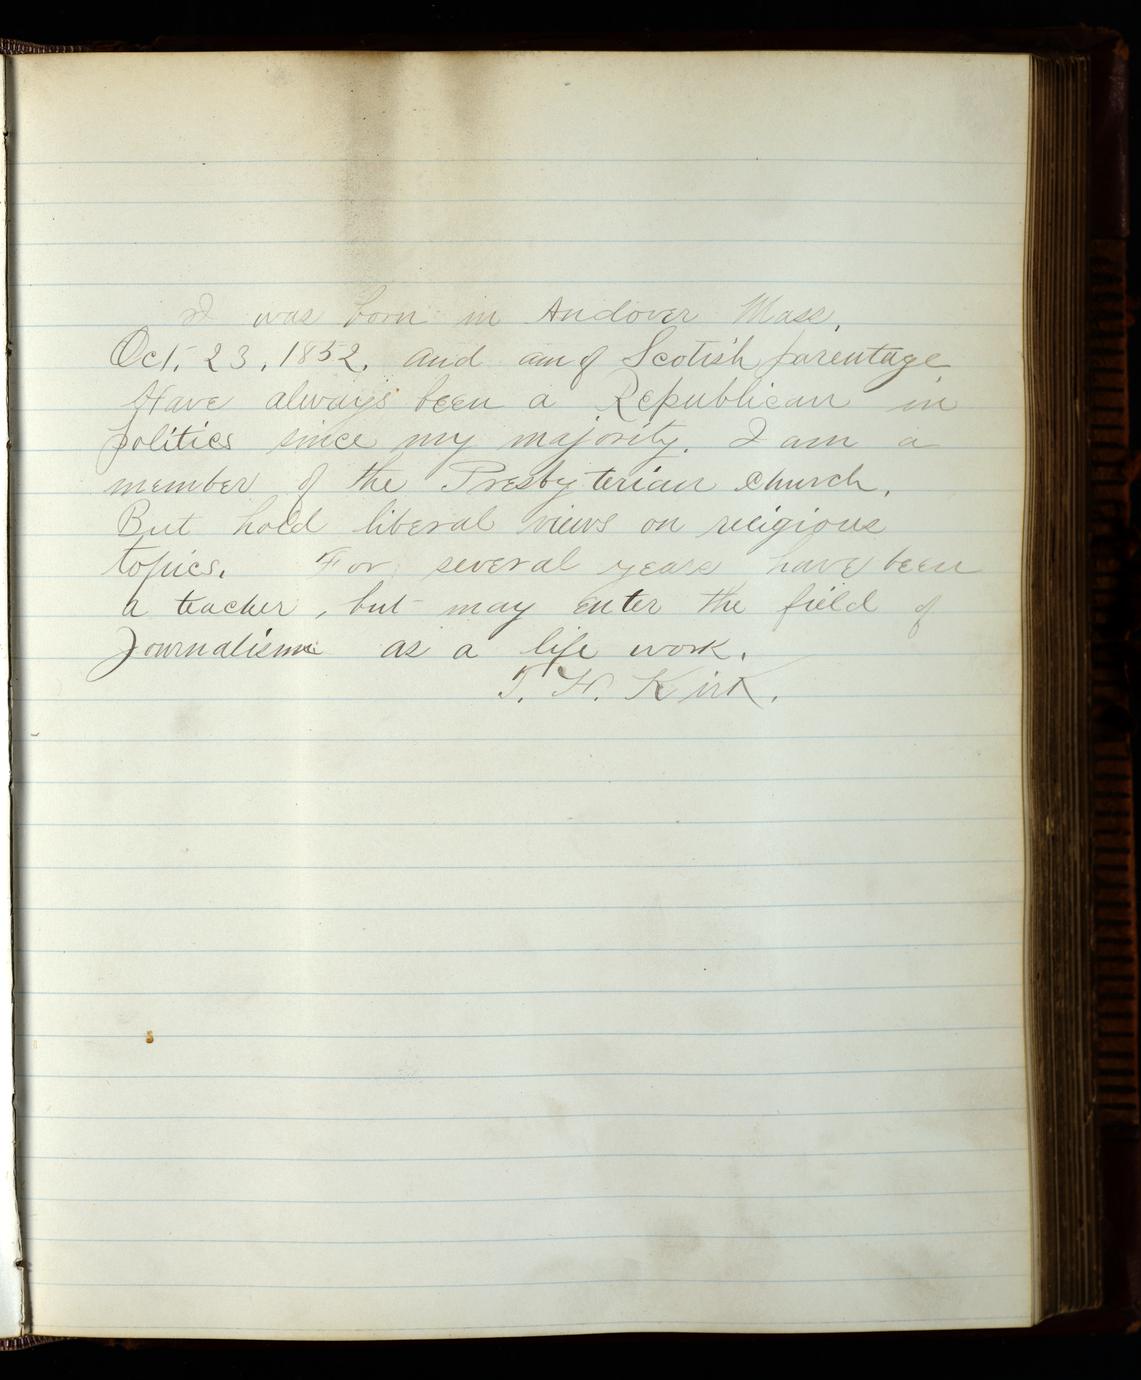 I was born in Andover Mass.
Oct. 23, 1852. and am of Scotish parentage
Have always been a Republican in
politics since my majority. I am a
member of the Presbyterian church.
But hold liberal views on religious
topics. For several years have been
a teacher, but may enter the field of
Journalism as a life work.
T. H. Kirk.